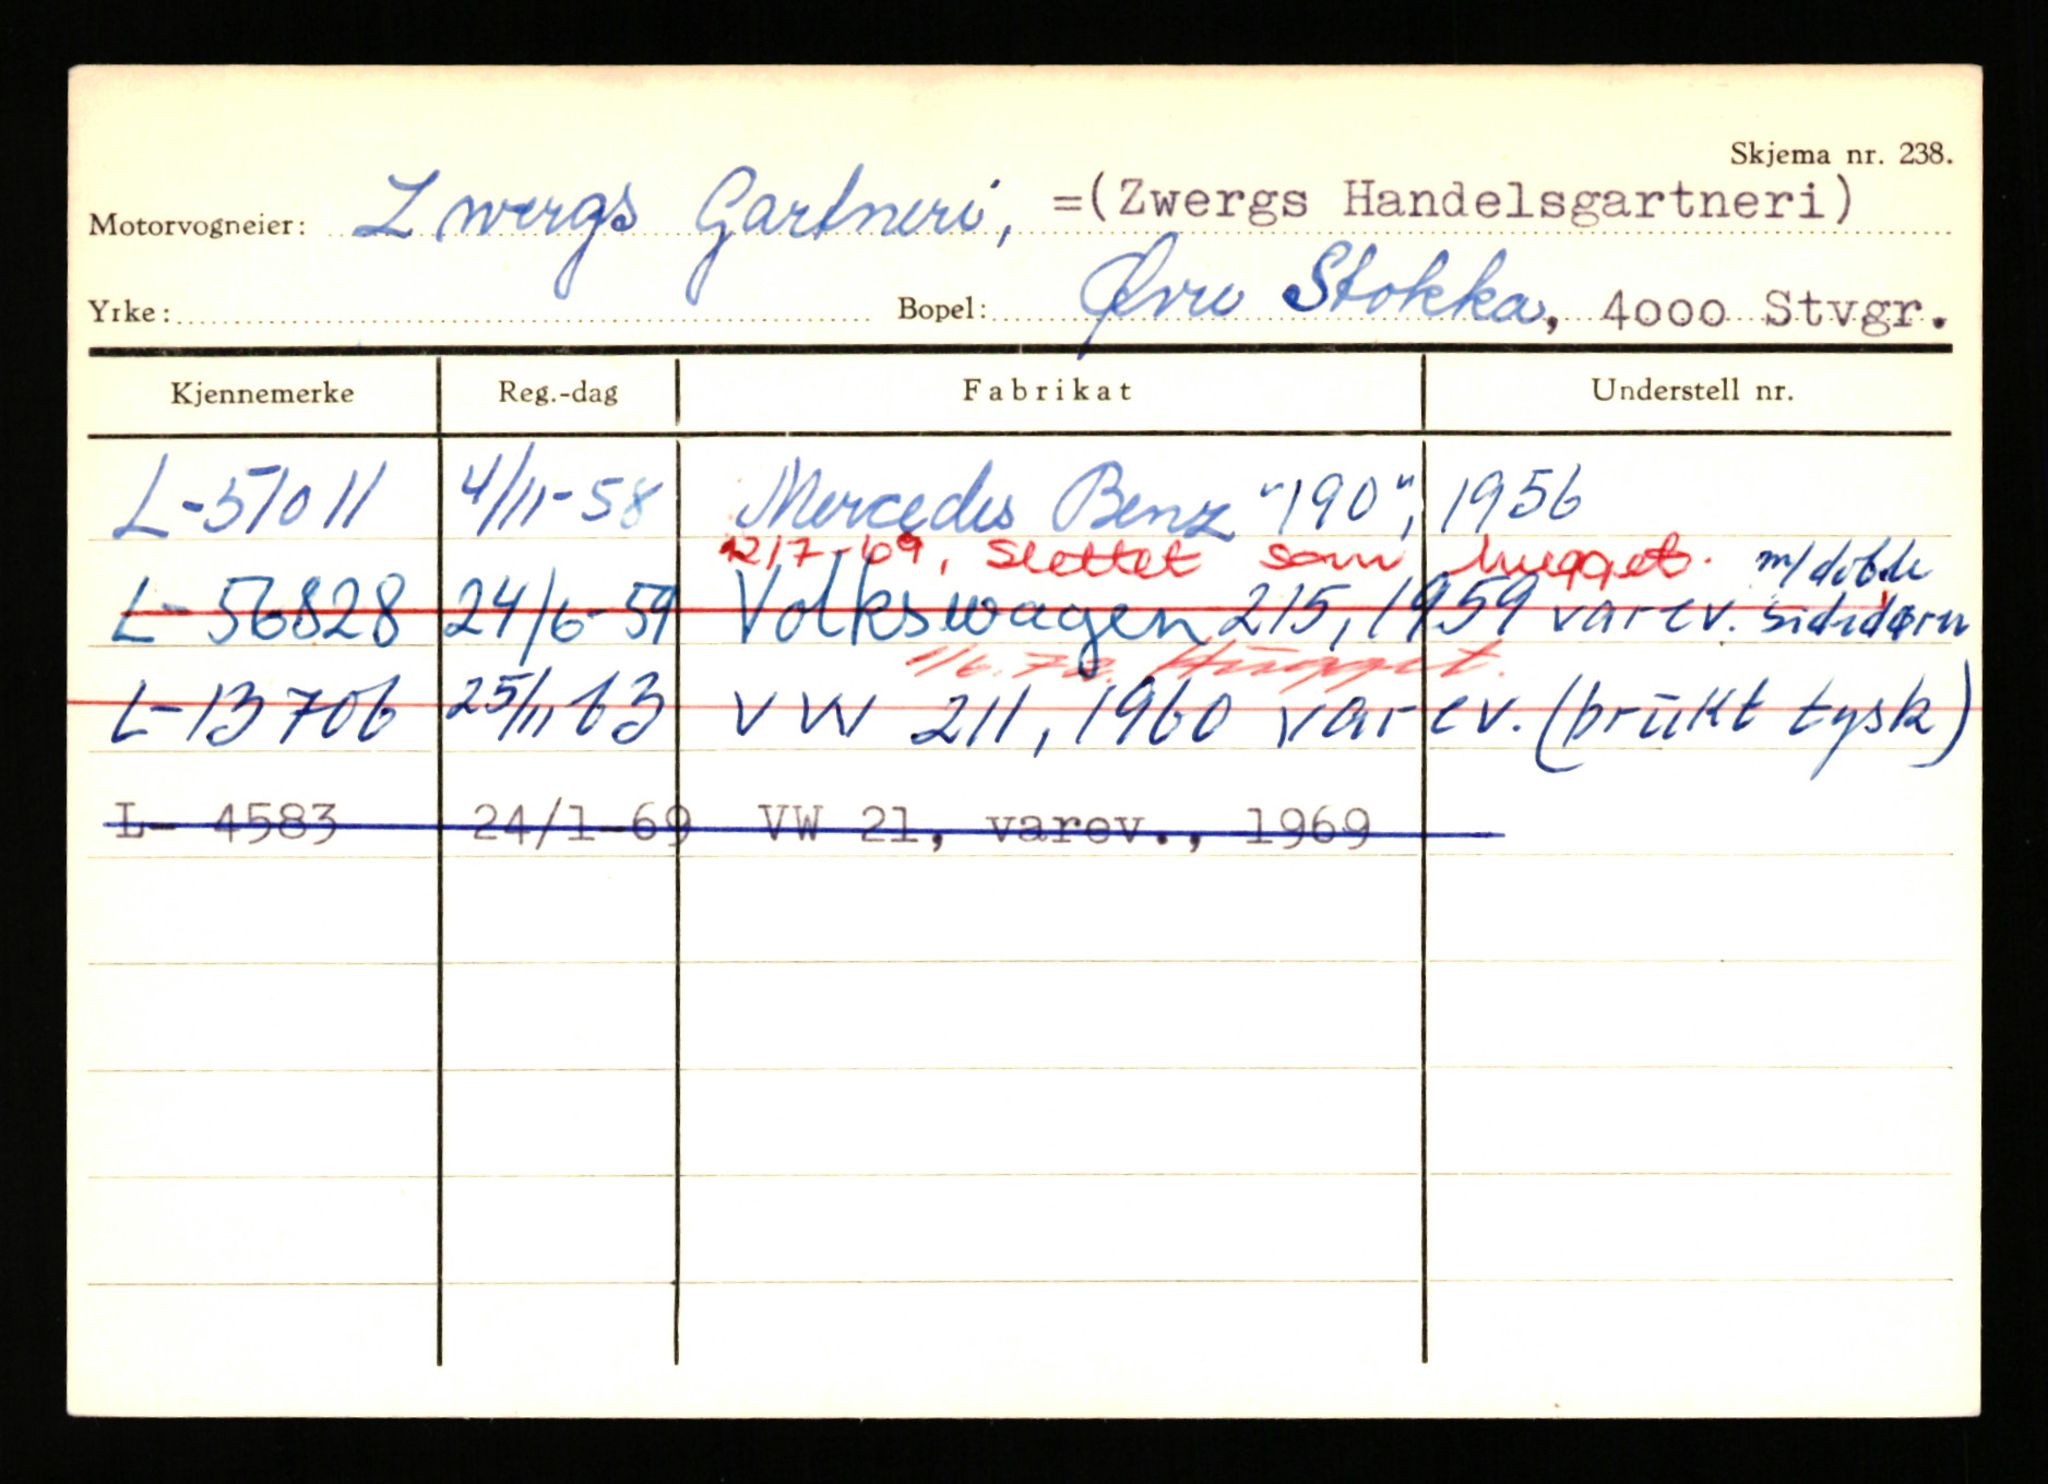 Skjema nr. 238.
Motorvogneier: Zwergs Gartneri, =(Zwergs Handelsgartneri)
Yrke: Bopel: Øvre Stokka, 4000 Stvgr.
Kjennemerke Reg.-dag Fabrikat Understell nr.
L-51011 4/11-58 Mercedes Benz "190", 1956
12/7-69, slettet som hugget. m/doble
L-56828 24/6-59 Volkswagen 215, 1959 varev. sidedører
1/6.72. Hugget.
L-13706 25/11 63 VW 211, 1960 varev. (brukt tysk)
L- 4583 24/1-69 VW 21, varev., 1969